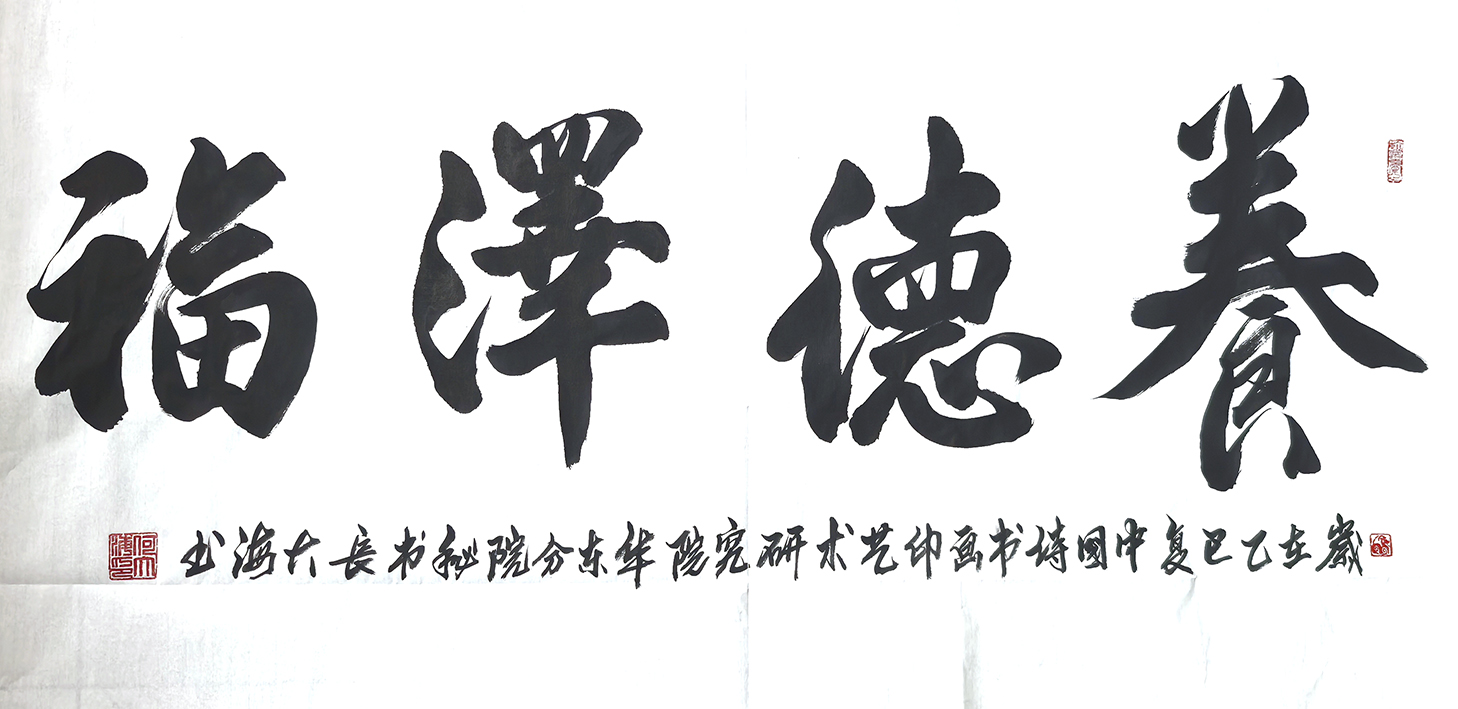 養德澤福
歲在乙巳夏中国诗书画印艺术研究院华东分院秘书长大海书